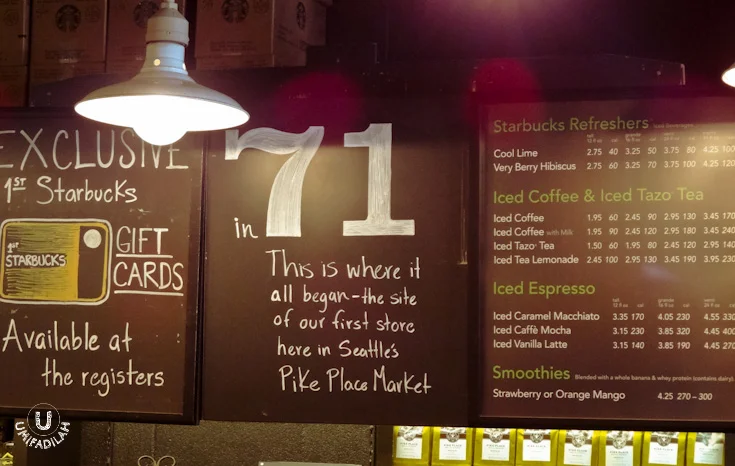 EXCLUSIVE
1ST Starbucks
1ST
STARBUCKS
GIFT
CARDS
Available at
the registers
in 71
This is where it
all began-the site
of our first store
here in Seattle's
Pike Place Market
Starbucks Refreshers
Cool Lime 2.75 60 3.25 50 3.75 80 4.25 100
Very Berry Hibiscus 2.75 60 3.25 70 3.75 100 4.25 120
Iced Coffee & Iced Tazo Tea
Iced Coffee 1.95 60 2.45 90 2.95 130 3.45 170
Iced Coffee with Milk 1.95 90 2.45 120 2.95 180 3.45 240
Iced Tazo Tea 1.50 60 1.95 80 2.45 120 2.95 140
Iced Tea Lemonade 2.45 100 2.95 130 3.45 190 3.95 230
Iced Espresso
tall grande venti
Iced Caramel Macchiato 3.35 170 4.05 230 4.55 330
Iced Caffè Mocha 3.15 230 3.85 320 4.45 400
Iced Vanilla Latte 3.15 140 3.85 190 4.45 270
Smoothies Blended with a whole banana & whey protein (contains dairy).
Strawberry or Orange Mango 4.25 270 – 300
U
UMIFADILAH